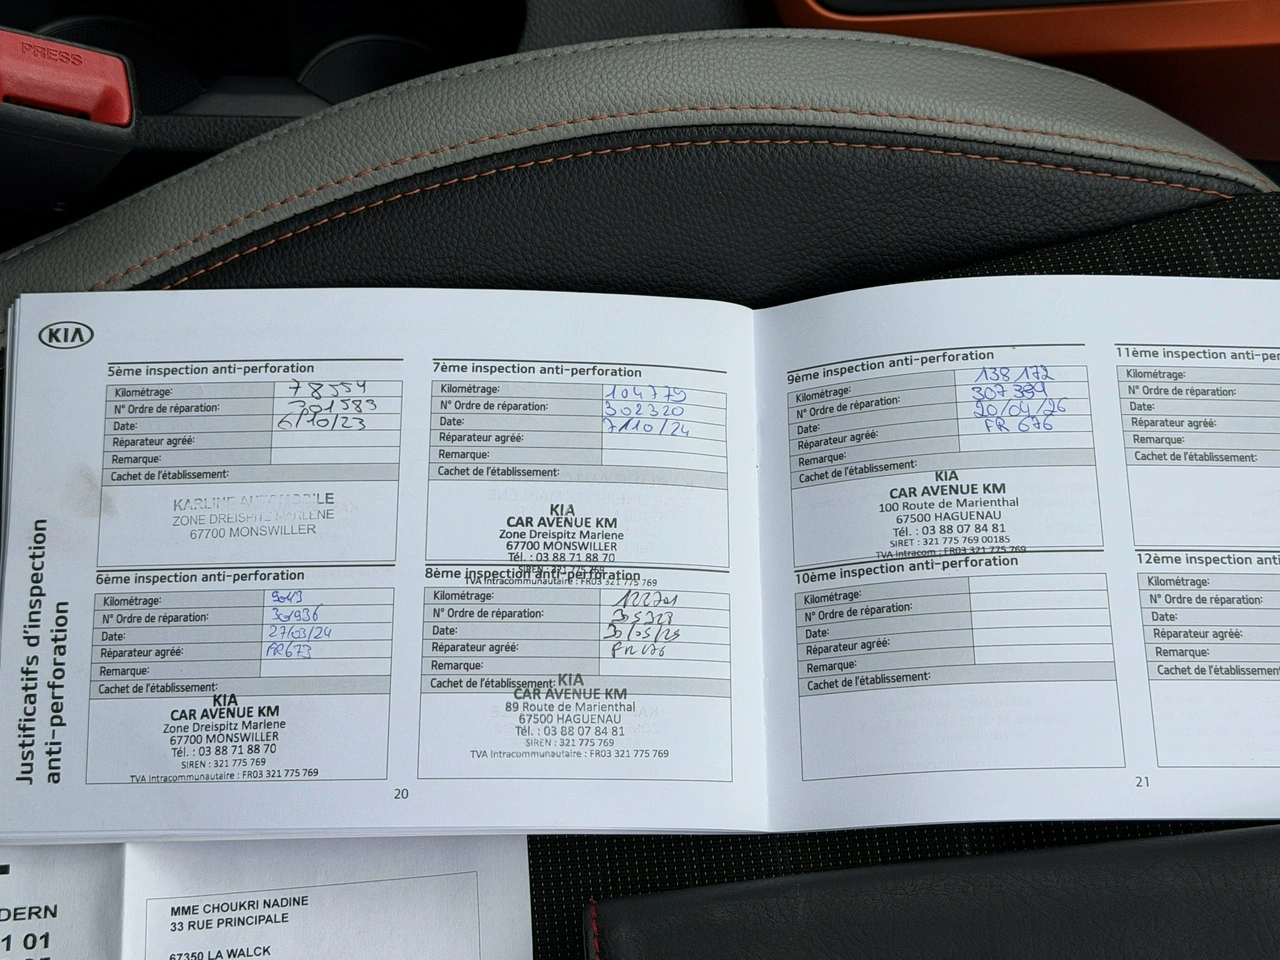 PRESS
KIA
Justificatifs d'inspection
anti-perforation
5ème inspection anti-perforation
Kilométrage: 78554
N° Ordre de réparation: 301583
Date: 6/10/23
Réparateur agréé:
Remarque:
Cachet de l'établissement:
KARLINE AUTOMOBILE
ZONE DREISPITZ MARLENE
67700 MONSWILLER
6ème inspection anti-perforation
Kilométrage:
N° Ordre de réparation: 301936
Date: 27/03/24
Réparateur agréé: FR673
Remarque:
Cachet de l'établissement:
KIA
CAR AVENUE KM
Zone Dreispitz Marlene
67700 MONSWILLER
Tél. : 03 88 71 88 70
SIREN : 321 775 769
TVA Intracommunautaire : FR03 321 775 769
7ème inspection anti-perforation
Kilométrage: 104779
N° Ordre de réparation: 302320
Date: 7/10/24
Réparateur agréé:
Remarque:
Cachet de l'établissement:
KIA
CAR AVENUE KM
Zone Dreispitz Marlene
67700 MONSWILLER
Tél. : 03 88 71 88 70
SIREN : 321 775 769
TVA Intracommunautaire : FR03 321 775 769
8ème inspection anti-perforation
Kilométrage:
N° Ordre de réparation:
Date: 30/05/25
Réparateur agréé:
Remarque:
Cachet de l'établissement:
KIA
CAR AVENUE KM
89 Route de Marienthal
67500 HAGUENAU
Tél. : 03 88 07 84 81
SIREN : 321 775 769
TVA Intracommunautaire : FR03 321 775 769
20
9ème inspection anti-perforation
Kilométrage: 138 172
N° Ordre de réparation: 307 394
Date: 20/04/26
Réparateur agréé: FR 676
Remarque:
Cachet de l'établissement:
KIA
CAR AVENUE KM
100 Route de Marienthal
67500 HAGUENAU
Tél. : 03 88 07 84 81
SIRET : 321 775 769 00185
TVA Intracom : FR03 321 775 769
10ème inspection anti-perforation
Kilométrage:
N° Ordre de réparation:
Date:
Réparateur agréé:
Remarque:
Cachet de l'établissement:
11ème inspection anti-per
Kilométrage:
N° Ordre de réparation:
Date:
Réparateur agréé:
Remarque:
Cachet de l'établissement:
12ème inspection anti
Kilométrage:
N° Ordre de réparation:
Date:
Réparateur agréé:
Remarque:
Cachet de l'établissement:
21
DERN
1 01
MME CHOUKRI NADINE
33 RUE PRINCIPALE
67350 LA WALCK